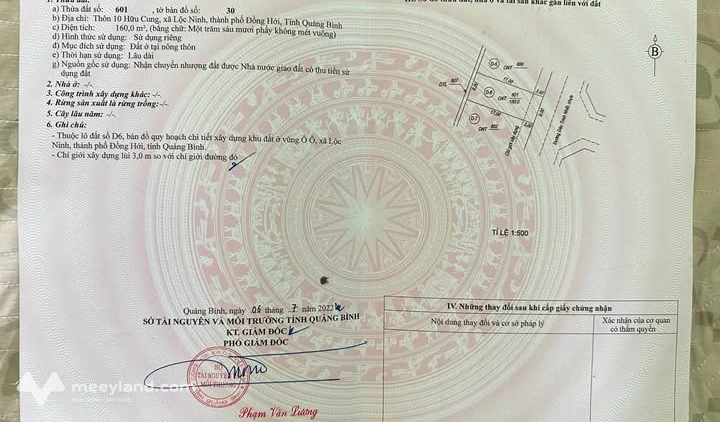 a) Thửa đất số: 601 , tờ bản đồ số: 30
b) Địa chỉ: Thôn 10 Hữu Cung, xã Lộc Ninh, thành phố Đồng Hới, Tỉnh Quảng Bình
c) Diện tích: 160,0 m², (bằng chữ: Một trăm sáu mươi phẩy không mét vuông)
d) Hình thức sử dụng: Sử dụng riêng
đ) Mục đích sử dụng: Đất ở tại nông thôn
e) Thời hạn sử dụng: Lâu dài
g) Nguồn gốc sử dụng: Nhận chuyển nhượng đất được Nhà nước giao đất có thu tiền sử
dụng đất
2. Nhà ở: -/-
3. Công trình xây dựng khác: -/-
4. Rừng sản xuất là rừng trồng:-/-
5. Cây lâu năm: -/-
6. Ghi chú:
- Thuộc lô đất số D6, bản đồ quy hoạch chi tiết xây dựng khu đất ở vũng Ồ Ồ, xã Lộc
Ninh, thành phố Đồng Hới, tỉnh Quảng Bình.
- Chỉ giới xây dựng lùi 3,0 m so với chỉ giới đường đỏ
B
ONT 600
17,00
DTL 607
ONT 601
160,0
17,00
ONT 602
3,00
Chỉ giới xây dựng
TỈ LỆ 1:500
Quảng Bình, ngày 06 tháng 7 năm 2022
SỞ TÀI NGUYÊN VÀ MÔI TRƯỜNG TỈNH QUẢNG BÌNH
KT. GIÁM ĐỐC
PHÓ GIÁM ĐỐC
SỞ
TÀI NGUYÊN
MÔI TRƯỜNG
Phạm Văn Lương
IV. Những thay đổi sau khi cấp giấy chứng nhận
Nội dung thay đổi và cơ sở pháp lý
Xác nhận của cơ quan
có thẩm quyền
meeyland.com